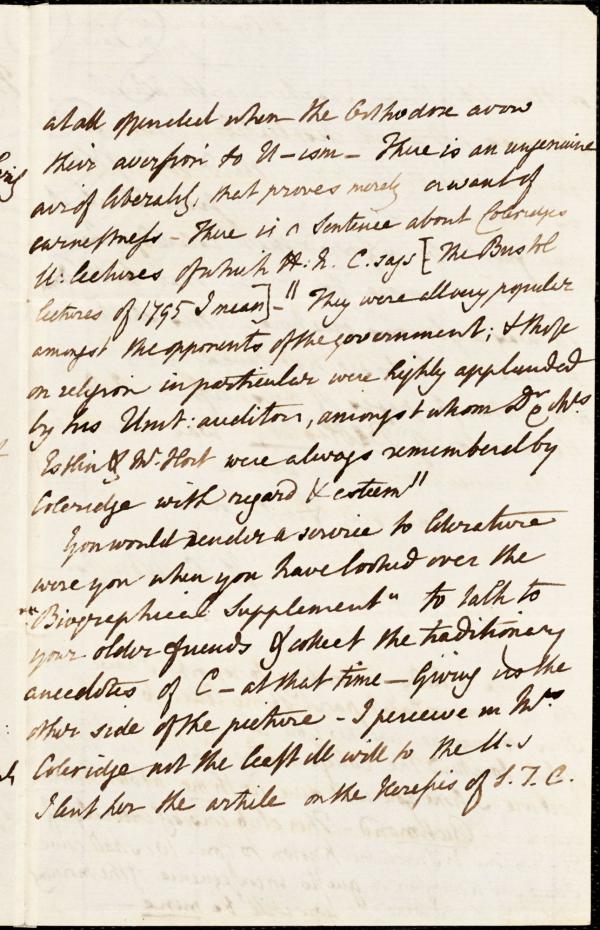 at all offended when the Orthodox avow
their aversion to U-ism - There is an ungenuine
air of liberality, that proves merely a want of
earnestness - There is a sentence about Coleridges
U: lectures of which H. N. C. says [The Bristol
lectures of 1795 I mean] - "They were all very popular
amongst the opponents of the government; & those
on religion in particular were highly applauded
by his Unit: auditors, amongst whom Dr & Mrs
Estlin & Mr. Hort were always remembered by
Coleridge with regard & esteem"
You would render a service to literature
were you when you have looked over the
"Biographical Supplement" to talk to
your older friends & collect the traditionary
anecdotes of C - at that time - Giving us the
other side of the picture - I perceive in Mrs
Coleridge not the least ill will to the U-s
I lent her the article on the Heresies of S. T. C.